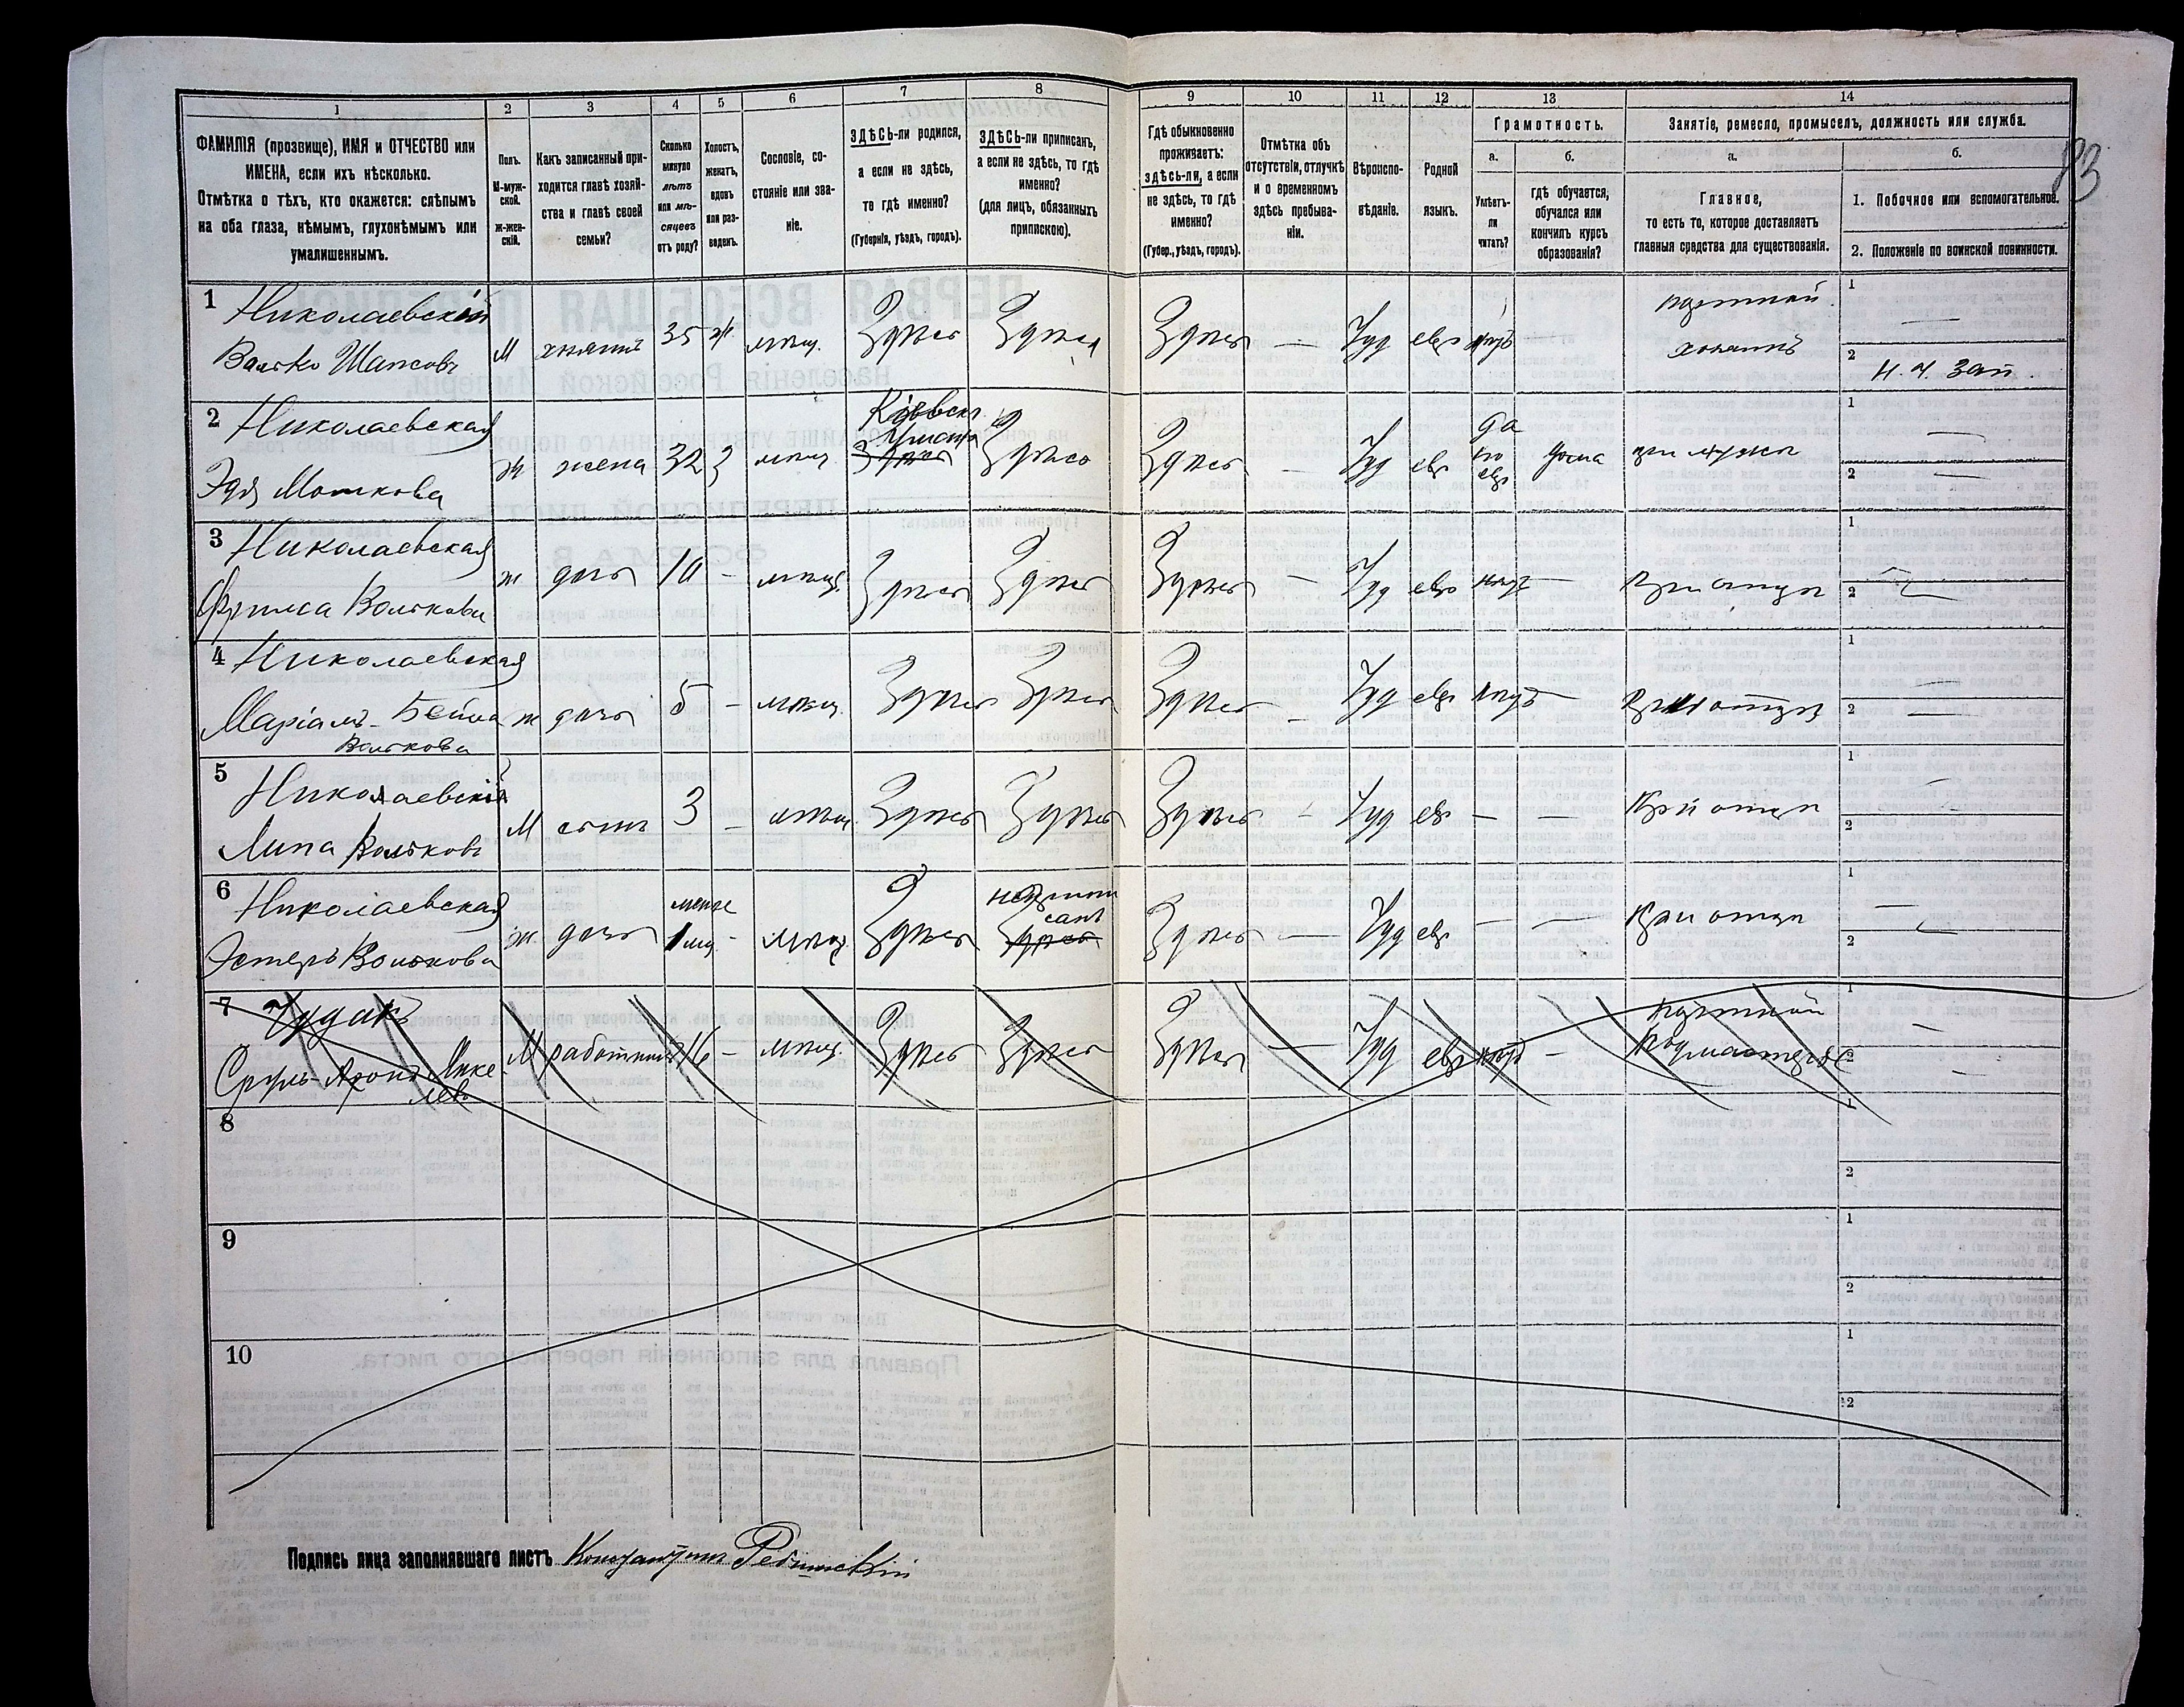 83
1
2
3
4
5
6
7
8
9
10
11
12
13
14
ФАМИЛІЯ (прозвище), ИМЯ и ОТЧЕСТВО или
ИМЕНА, если ихъ нѣсколько.
Отмѣтка о тѣхъ, кто окажется: слѣпымъ
на оба глаза, нѣмымъ, глухонѣмымъ или
умалишеннымъ.
Полъ.
М-муж-
ской.
ж-жен-
скій.
Какъ записанный при-
ходится главѣ хозяй-
ства и главѣ своей
семьи?
Сколько
минуло
лѣтъ
или мѣ-
сяцевъ
отъ роду?
Холостъ,
женатъ,
вдовъ
или раз-
веденъ.
Сословіе, со-
стояніе или зва-
ніе.
ЗДѢСЬ-ли родился,
а если не здѣсь,
то гдѣ именно?
(Губернія, уѣздъ, городъ).
ЗДѢСЬ-ли приписанъ,
а если не здѣсь, то гдѣ
именно?
(для лицъ, обязанныхъ
припискою).
Гдѣ обыкновенно
проживаетъ:
здѣсь-ли, а если
не здѣсь, то гдѣ
именно?
(Губер., уѣздъ, городъ).
Отмѣтка объ
отсутствіи, отлучкѣ
и о временномъ
здѣсь пребыва-
ніи.
Вѣроиспо-
вѣданіе.
Родной
языкъ.
Грамотность.
а.
Умѣетъ-
ли
читать?
б.
гдѣ обучается,
обучался или
кончилъ курсъ
образованія?
Занятіе, ремесло, промыселъ, должность или служба.
а.
Главное,
то есть то, которое доставляетъ
главныя средства для существованія.
б.
1. Побочное или вспомогательное.
2. Положеніе по воинской повинности.
1 Николаевскій
Волько Шапсовъ
М хозяинъ 35 ж. мѣщ. Здѣсь Здѣсь Здѣсь — Іуд евр нѣтъ —
портной
хозяинъ
1 —
2 Н. Ч. Зап.
2 Николаевская
Эдя Мошкова
ж жена 32 З мѣщ
Кіевск.
Умань
Здѣсь
Здѣсь Здѣсь — Іуд евр
да
по
евр
дома при мужѣ
1
2 —
3 Николаевская
Фрима Волькова
ж дочь 10 - мѣщ. Здѣсь Здѣсь Здѣсь — Іуд евр нѣтъ — при отцѣ
1
2
4 Николаевская
Маріамъ-Бейла
Волькова
ж дочь 5 - мѣщ. Здѣсь Здѣсь Здѣсь - Іуд евр нѣтъ — при отцѣ
1
2 —
5 Николаевскій
Липа Вольковъ
М сынъ 3 - мѣщ. Здѣсь Здѣсь Здѣсь - Іуд евр — — При отцѣ
1 —
2
6 Николаевская
Эстеръ Волькова
ж. дочь
менѣе
1 мѣ.
- мѣщ. Здѣсь
не припи
санъ
Здѣсь
Здѣсь — Іуд евр — — При отцѣ
1 —
2
7 Чудакъ
Сруль-Аронъ Мике
левъ
М работникъ 16 - мѣщ. Здѣсь Здѣсь Здѣсь — Іуд евр нѣтъ -
портной
Подмастерье
1 —
2 —
8
1
2
9
1
2
10
1
2
Подпись лица заполнявшаго листъ Константинъ